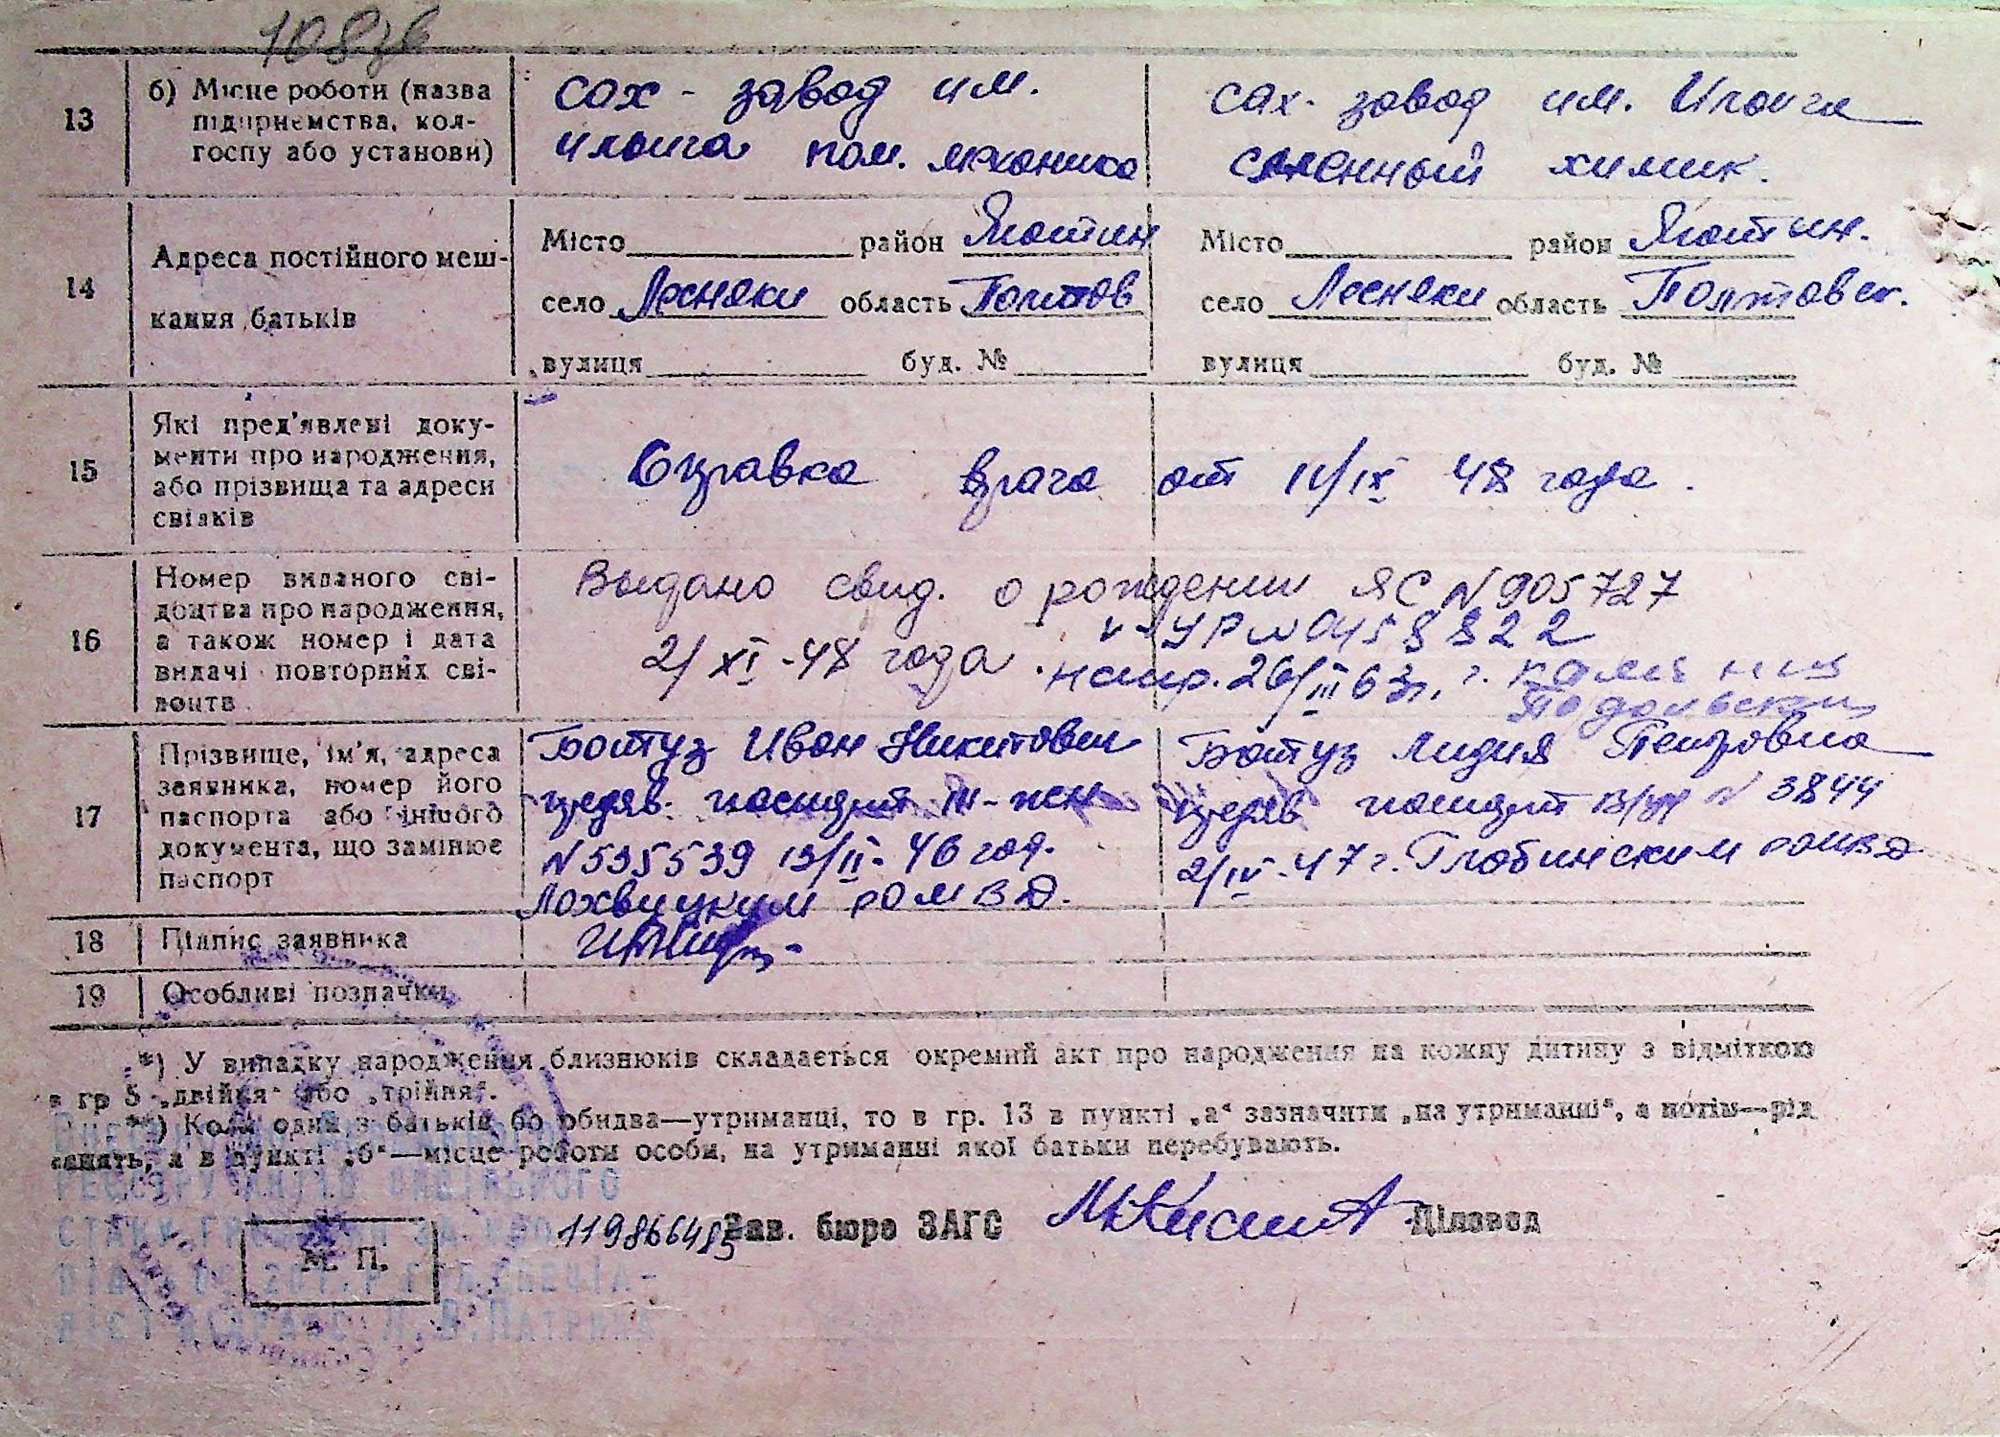 108зв
13
б) Місце роботи (назва
підприємства, кол-
госпу або установи)
сах-завод им.
Ильича пом. механика
сах-завод им. Ильича
сменный химик.
14
Адреса постійного меш-
кання батьків
Місто район Яготин
село Лесняки область Полтов
вулиця буд. №
Місто район Яготин.
село Лесняки область Полтовск.
вулиця буд. №
15
Які пред'явлені доку-
менти про народження,
або прізвища та адреси
свідків
Справка врача от IV/IX 48 года.
16
Номер виданого сві-
доцтва про народження,
а також номер і дата
видачі повторних сві-
доцтв
Выдано свид. о рождении ЯС N 905727
2/XI-48 года.
УР N 0458822
26/III 63г. г.
Подольский
17
Прізвище, ім'я, адреса
заявника, номер його
паспорта або іншого
документа, що замінює
паспорт
Ботуз Иван Никитович
предяв. паспорт III-
N 535539 13/II-46 год.
Лохвицким РОМВД.
Ботуз Лидия Петровна
предяв паспорт N 3844
2/IV-47 г. Глобинским РОМВД
18
Підпис заявника
19
Особливі позначки
*) У випадку народження близнюків складається окремий акт про народження на кожну дитину з відміткою
в гр 5 „двійня“ або „трійня“.
**) Коли один з батьків бо обидва—утриманці, то в гр. 13 в пункті „а“ зазначити „на утриманні“, а потім—рід
занять, а в пункті „б“—місце роботи особи, на утриманні якої батьки перебувають.
М. П.
119866485
Зав. бюро ЗАГС
Діловод